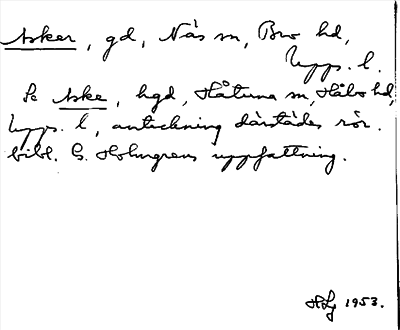 Asker, gd, Näs sn, Bro hd,
Upps. l.
Se Aske, hgd, Håtuna sn, Håbo hd,
Upps. l, anteckning därstädes rör.
bibl. G. Holmgrens uppfattning.
HLg 1953.